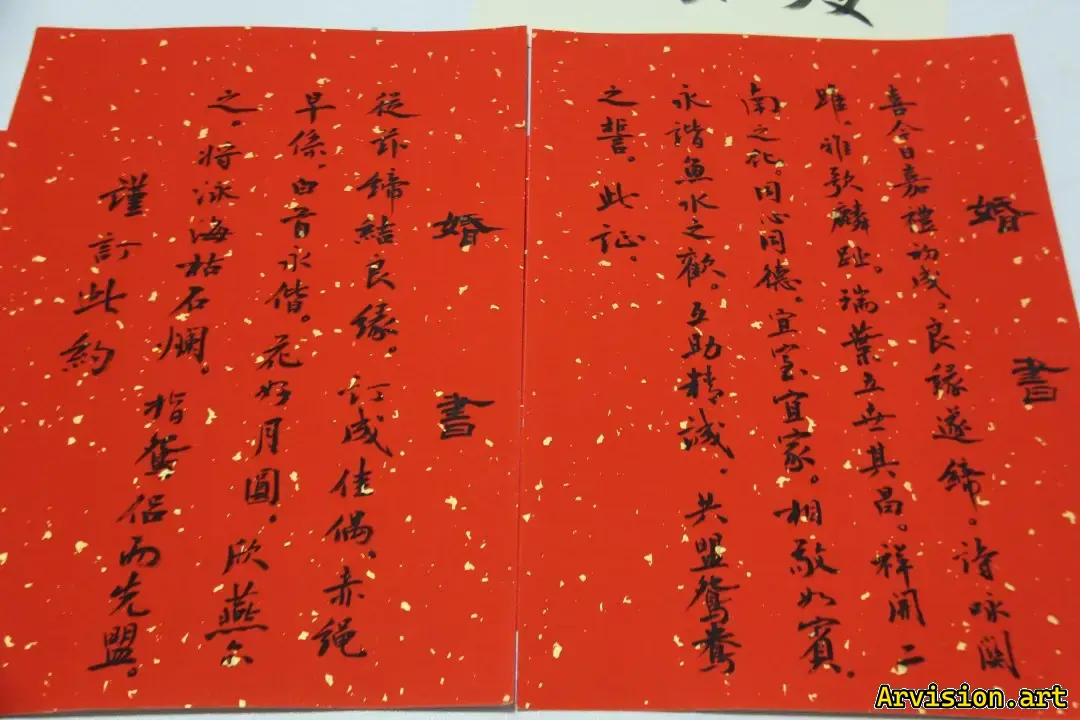 婚書
喜今日嘉禮初成,良緣遂締。詩咏關
雎,雅歌麟趾。瑞葉五世其昌。祥開二
南之化。同心同德。宜室宜家。相敬如賓。
永諧魚水之歡。互助精誠。共盟鴛鴦
之誓。此证。
婚書
從茲締結良緣。订成佳偶、赤繩
早係。白首永偕。花好月圓。欣燕尔
之。将泳海枯石爛。指鴛侣而先盟。
謹訂此約
Arvision.art